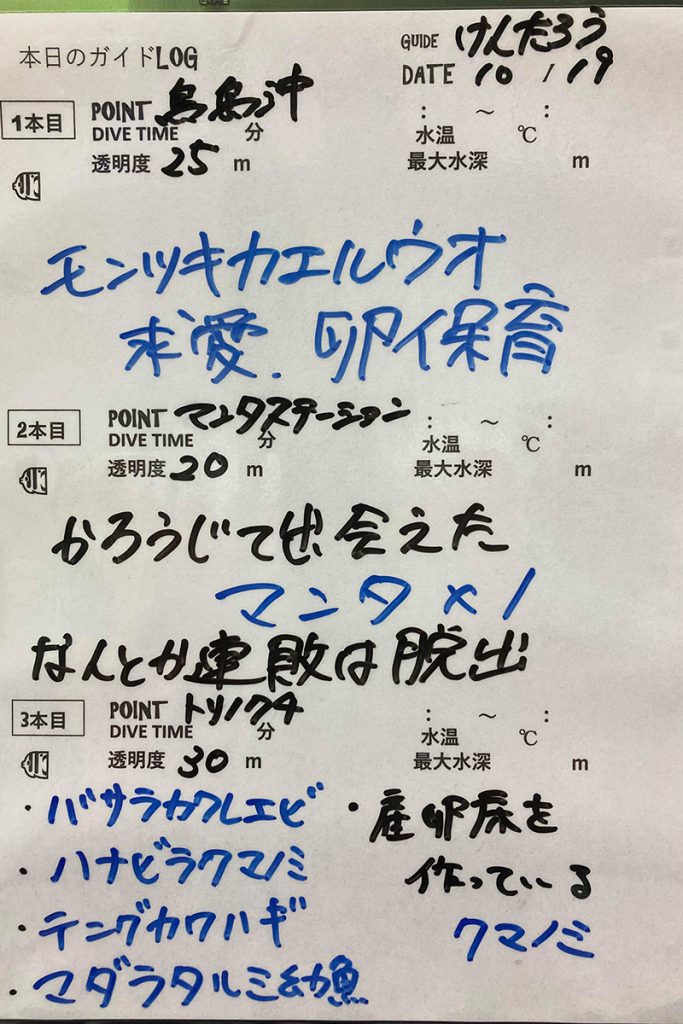 本日のガイドLOG
GUIDE けんたろう
DATE 10 / 19
1本目
POINT 鳥島沖
DIVE TIME 分
: ～ :
水温 ℃
透明度 25 m
最大水深 m
モンツキカエルウオ
求愛. 卵保育
2本目
POINT マンタステーション
DIVE TIME 分
: ～ :
水温 ℃
透明度 20 m
最大水深 m
かろうじてぜ会えた
マンタ×1
なんとか連敗は脱出
3本目
POINT トリノクチ
DIVE TIME 分
: ～ :
水温 ℃
透明度 30 m
最大水深 m
・バサラカクレエビ
・ハナビラクマノミ
・テングカワハギ
・マダラタルミ幼魚
・産卵床を
作っている
クマノミ